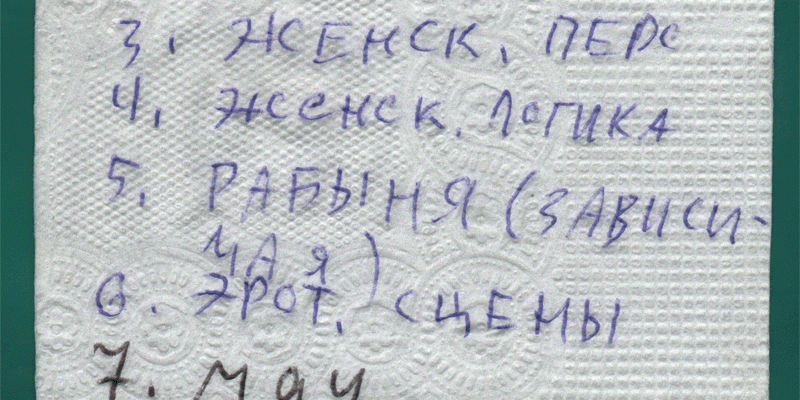 3. ЖЕНСК. ПЕРС
4. ЖЕНСК. ЛОГИКА
5. РАБЫНЯ (ЗАВИСИ-
МАЯ)
6. ЭРОТ. СЦЕНЫ
7. МАЧ